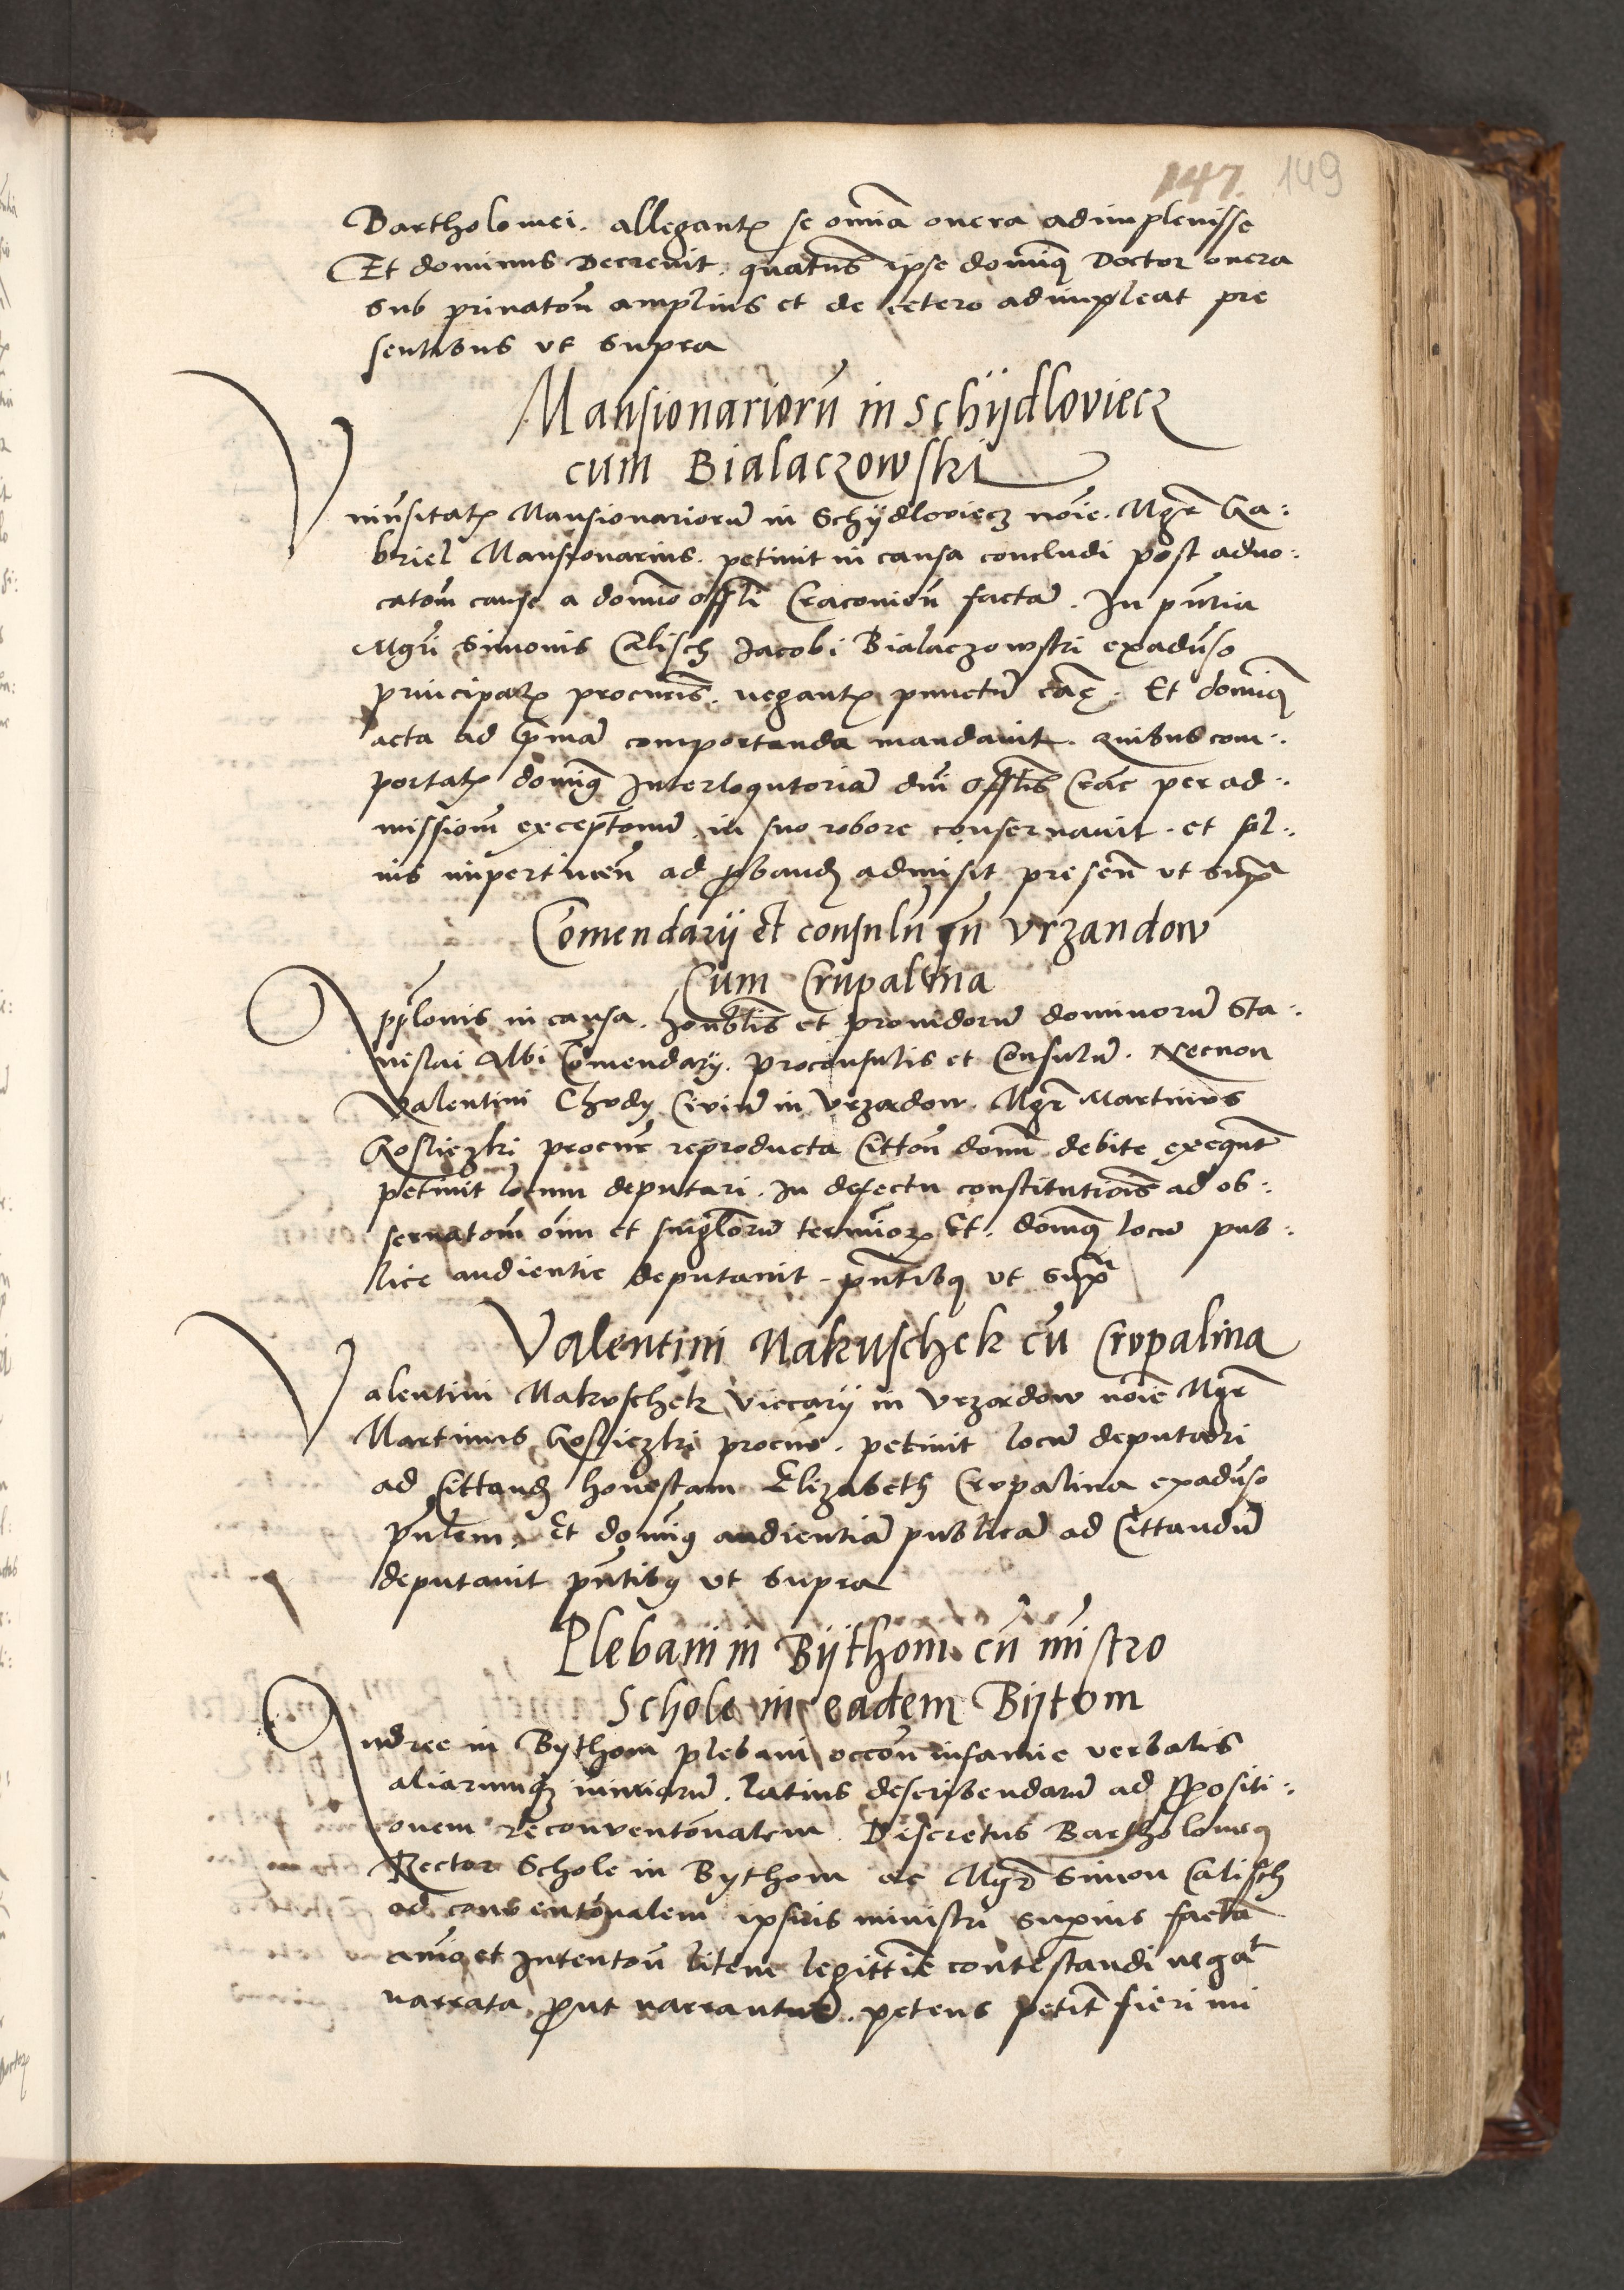 147. 149
Bartholomei. allegantis se omnia onera adimplevisse
Et dominus Decrevit. quatenus ipse dominus Doctor onera
sub privatom amplius et de cetero adimpleat pre
sentibus ut supra
Mansionariorum in Schydloviecz
cum Bialaczowski
Universitatis Mansionariorum in Schydloviecz noie. Mgr Ga:
briel Mansionarius. petivit in causa concludi post advo:
catom cause a domino offli Cracovien factam. In pntia
Mgri Simonis Calisch Jacobi Bialaczowski exadverso
principalis procuris. negantis punctum cae. Et dominus
acta ad primam comportanda mandavit. quibus com:
portatis dominus Interloqutoriam dni offlis Crac per ad:
missiom exceptonum in suo robore conservavit. et pl:
nis impertinen ad probandum admisit presen ut supra
Comendarij et consulum in Vrzandow
Cum Crupalina
Applonis in causa. honblis et providorum dominorum Sta:
nislai Albi Comendarij. proconsulis et Consulum. Necnon
Valentini Chudy Civium in Vrzedow. Mgr Martinus
Gosliczki procur reproducta Cittom domi debite exequt
petivit locum deputari. In defectu constitutiois ad ob:
servatom oim et singlorum terminorum Et. dominus locum pub:
lice audientie deputavit. pntibus ut supra
Valentini Makuschek cu Crupalina
Valentini Makuschek Viccarij in Vrzedow noie Mgr
Martinus Goslieczki procur. petivit locum deputari
ad Cittandum honestam Elizabeth Crupalina exadverso
pnlem. Et dominus audientiam publicam ad Cittandum
deputavit pntibus ut supra
Plebani in Bythom cu mistro
Schole in eadem Bytom
Andree in Bythom plebani occon infamie verbalis
aliarumque iniuriarum. latius describendarum ad propositi:
onem reconventonalem. Discretus Bartholomeus
Rector Schole in Bythom ac Mgr Simon Calisch
ad conventonalem ipsius ministri superius factam
animo et Intentom litem legittime contestandi negat
narrata prout narrantur. petens petit fieri mi